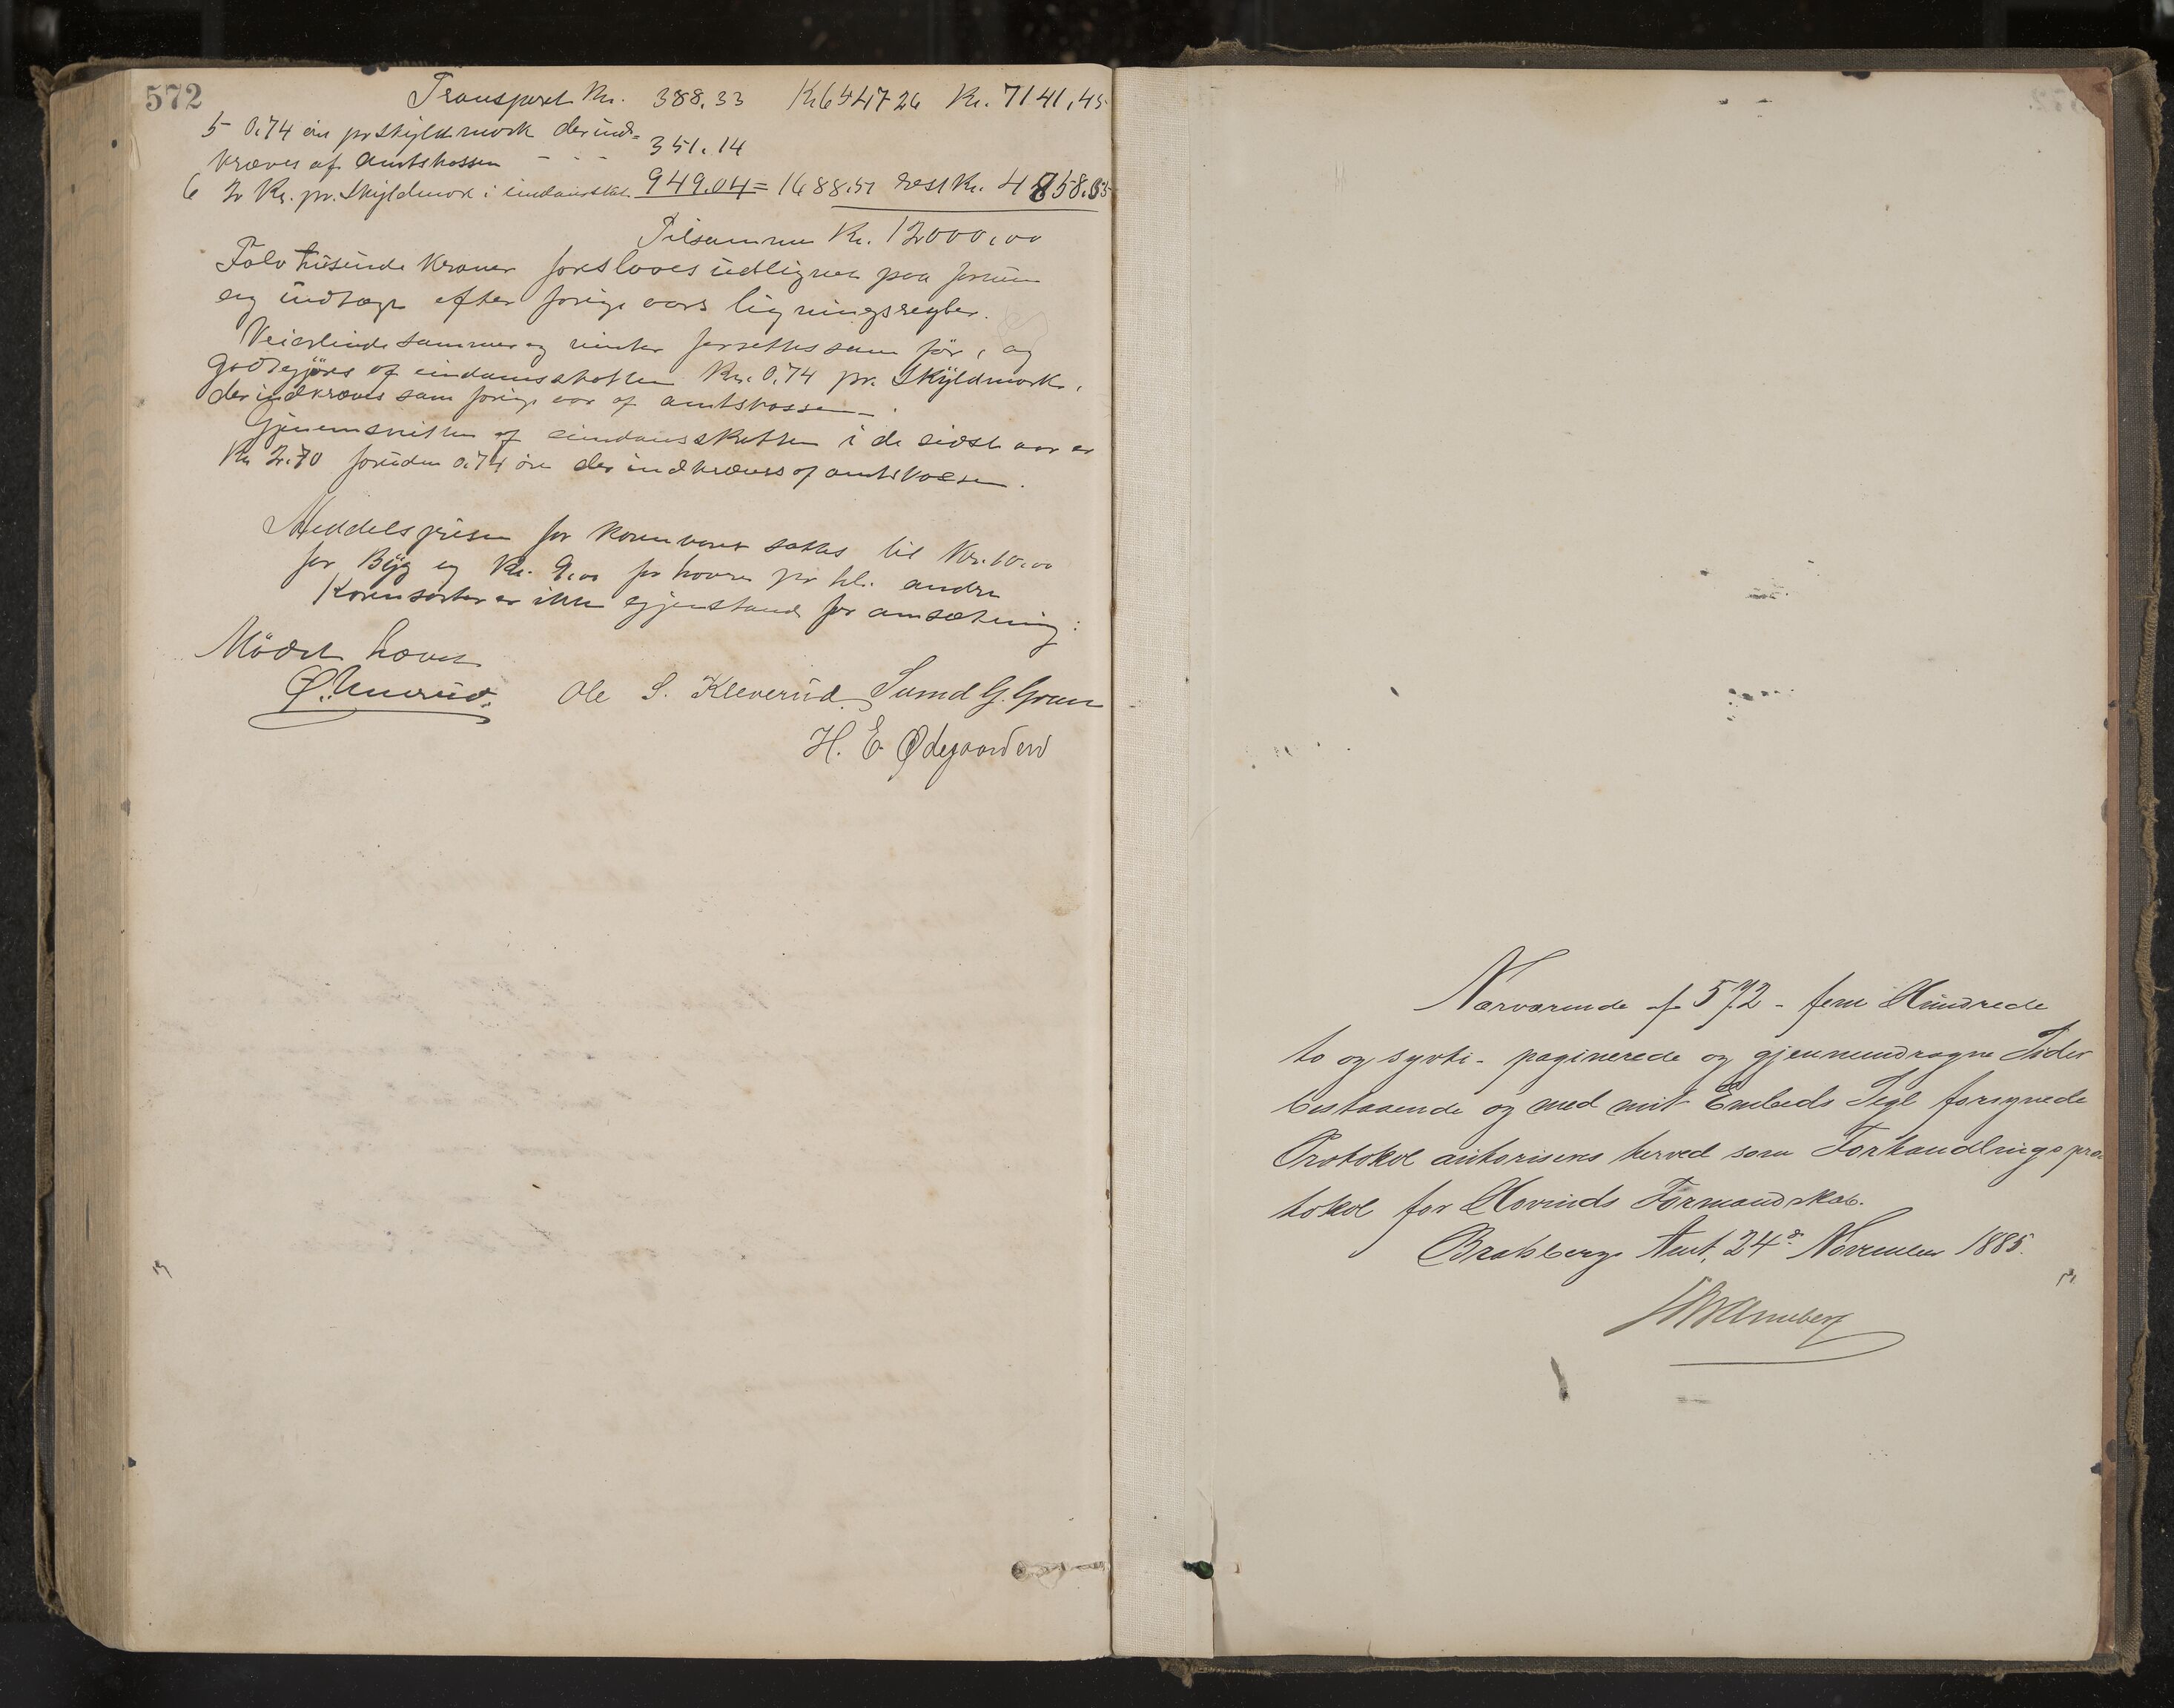 572
Transport Kr. 388.33 Kr 6547 26 Kr. 7141,45
5 0.74 øre pr skyldmark der ind=
kræves af Amtskassen - - - 351.14
6 2 Kr. pr. Skyldmark i 949.04 = 1688.51 rest Kr. 4858.55
Tilsammen Kr. 12000,00
Tolv tusinde kroner foreslaaes udlignet paa formue
og indtægt efter forrige aars ligningsregler.
Veiarbeide sommer og vinter fortsættes som før, og
godtgjøres af eiendomsskatten Kr. 0,74 pr. Skyldmark,
der indkræves som forrige aar af amtskassen.
Gjenemsnitten af eiendomsskatten i de sidste aar er
Kr 2.70 foruden 0.74 øre der indkræves af amtskassen.
Middelsprisen for kornvarer sættes til Kr. 10.00
for Byg og Kr. 9,00 for havre pr hl. andre
Kornsorter er ikke gjenstand for omsætning.
Mødet hævet
Ole S. Kleverud G. Groven
H. E Ødegaarden
Nærværende af 572 - fem Hundrede
to og sytti - paginerede og gjennemdragne Sider
bestaaende og med mit Embeds Segl forsynede
Protokol autoriseres herved som Forhandlingspro
tokol for Hovinds Formandskab.
Bratsberg Amt, 24de November 1885.